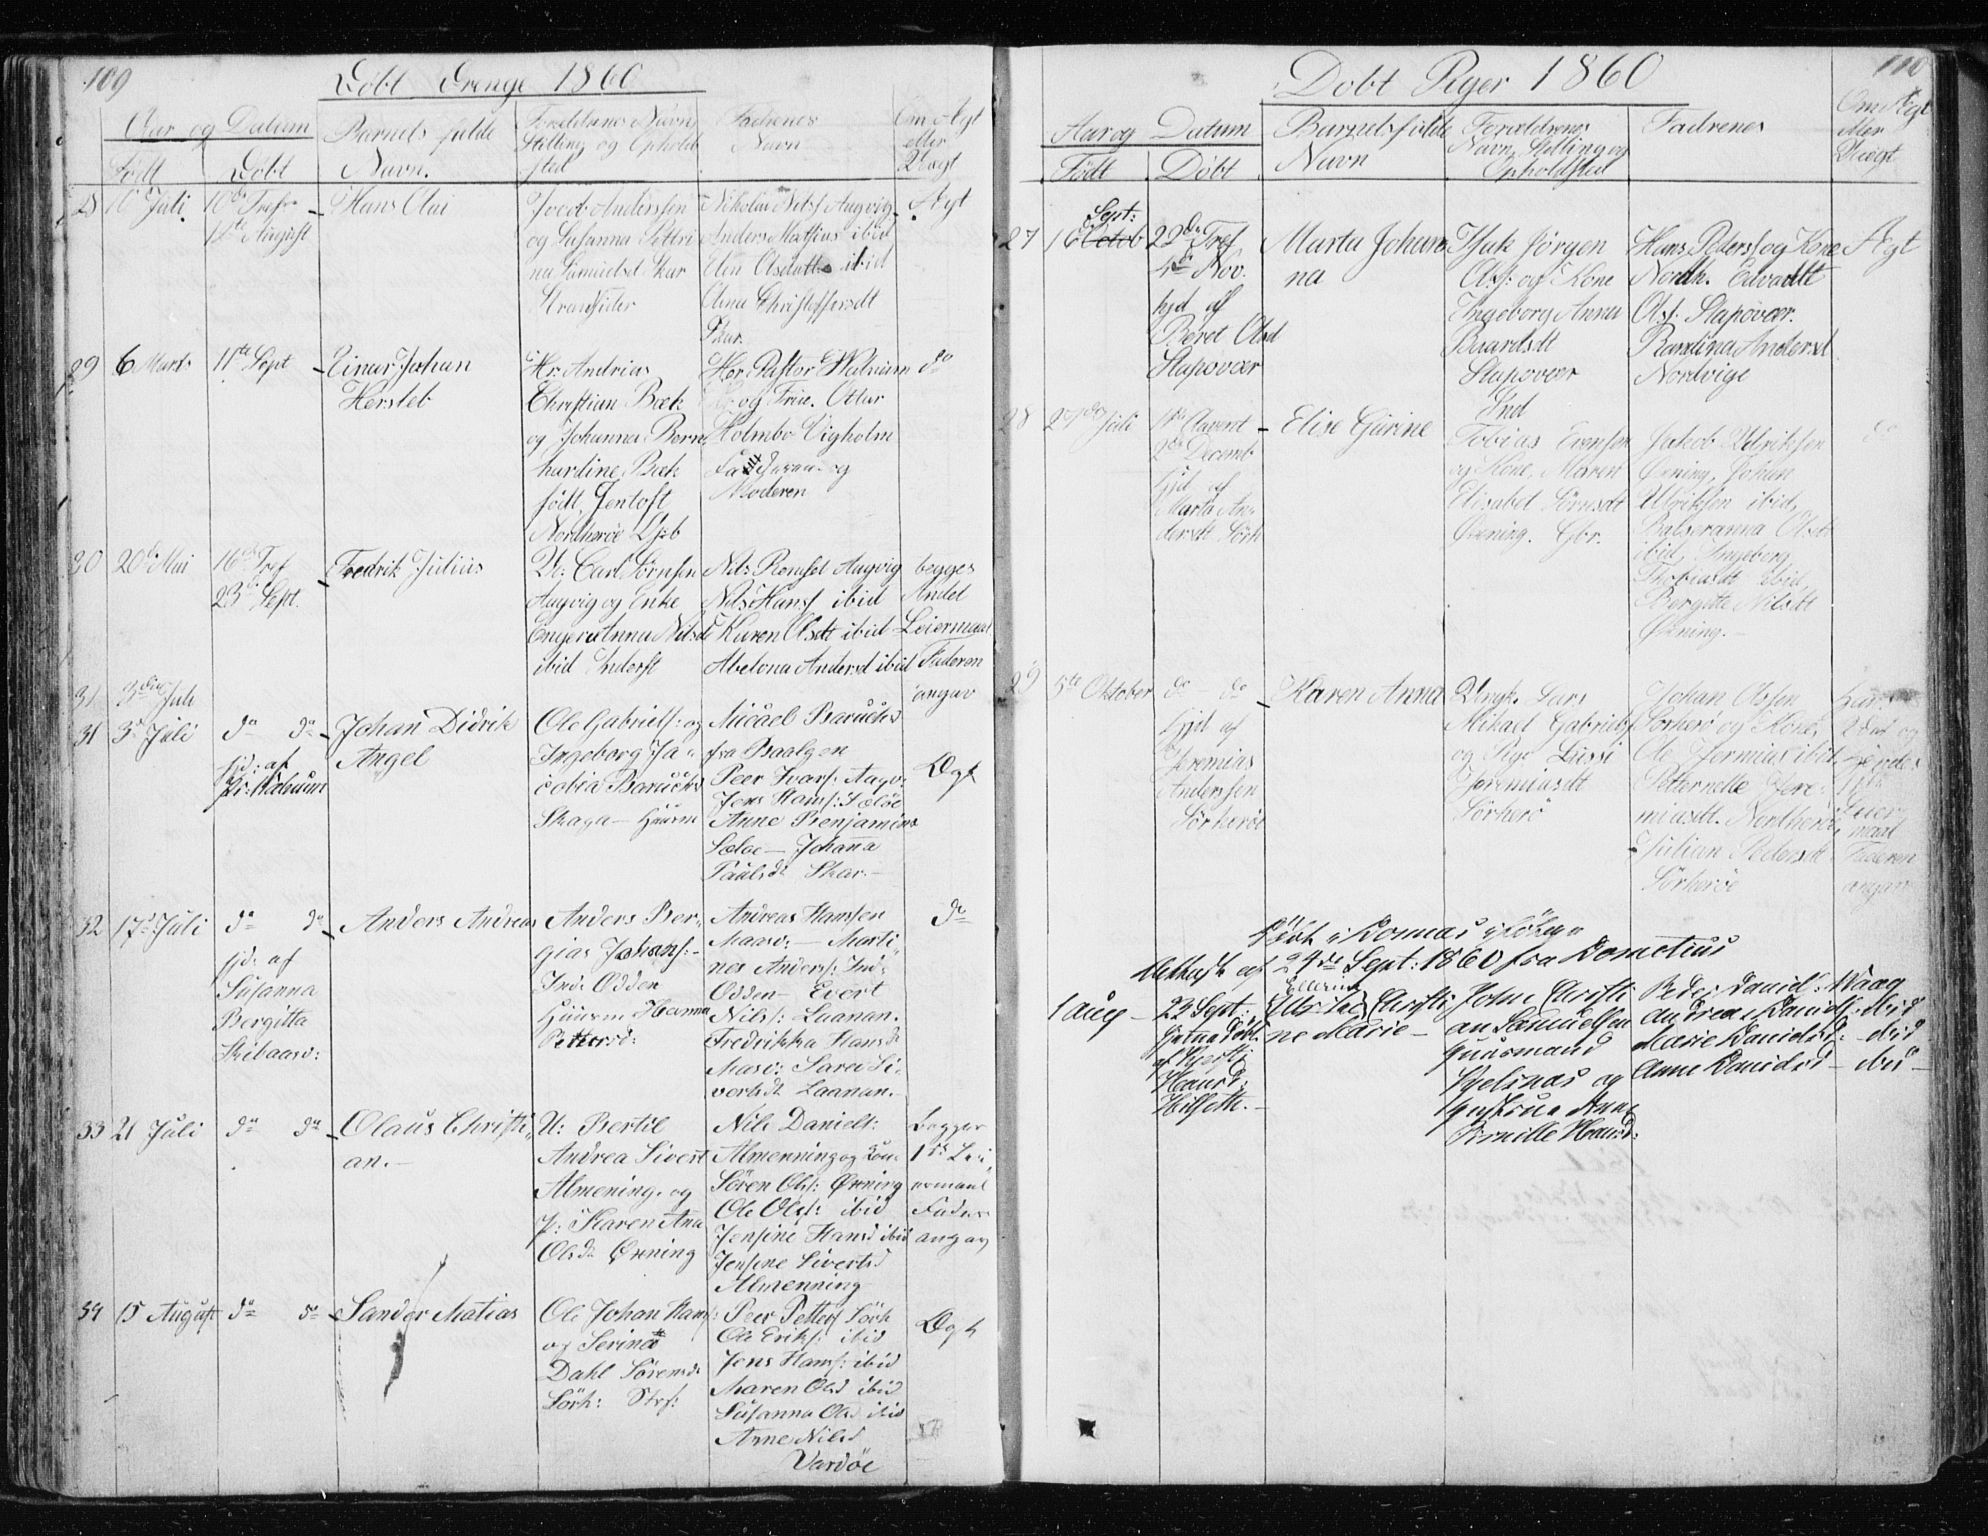 109
Döbt Drenge 1860
Aar og Datum
Födt
Döbt
Barnets fulde
Navn.
Forældrenes Navn
Stilling og Ophold
sted
Fadrenes
Navn
Om Ægt
eller
Uægt
28 10 Juli
10de Tref
12te August
Hans Olai
Anderssen
og Susanna Pettri
na Samuelsd Skar
Strandsider
Nikolai Nilss Aagvig
Anders Matsius ibid
Elen Olsdatt ibid
Olena Christoffersdt
Skar
Ægt
29 6 Marts 11te Sept
Einar Johan
Hersleb
Hr. Andrias
Christian Bæk
og Johanna Bern
hardine Bæk
födt Jentoft
Nordherøe
Her Pastor Walnum
og Frue. Ottar
Holmbo Vigholm
Faderen og
Moderen
do
30 20de Mai
16de Tref
23de Sept.
Fredrik Julius
U: Carl Sörnsen
Aagvig og Enke
Anna Nilsd
ibid Inderst
Nils Aagvig
Nils Hanss ibid
Karen Olsdt ibid
Abelona Andersd ibid
begges
Andet
Leiermaal
Faderen
angav
31 3die Juli
31 3de Juli do do
hjd: af
Pr: Walnum
Johan Didrik
Angel
Ole Gabriels: og
Ingeborg Ja-
cobia Baruchs
Skaga - Huusm
Micael Baruchs
fra Baalgen
Peer Ivars: Aagv:
Jens Hans: Sæløe
Anne Benjamins
Sæloe - Johanna
Paulsd: Skar. -
Ægt
32 17de Juli do do
hjd: af
Susanna
Bergitta
Skibaasv:
Anders Andreas
Anders Ber-
gias Johans: -
Ind: Odden
Huusm Hanna
Pettersd:
Andreas Hanssen
Maasv: - Marti-
nes Anderss: Ind:
Odden - Evert
Nilss: Laanan.
Fredrikka Hansd
Masv: Saren Si-
vertsd: Laanan. -
do
33 21 Juli do do
Olaus Christi-
an. -
U: Bertil
Andrea Sivert
Almening. og
p: Karen Ana
Olsdt Øxning
Nils Danielt:
Almenning og Kone
Sören Ols: Øxning
Ole Ols: ibid
Jensine Hansd ibid
Jensine Sivertsd
Almenning
Begges
1ste Lei-
ermaal
Fader
angav
34 15 August do do
Sander Matias
Ole Johan Hans:
og Serina
Dahl Sörensd:
Sörh: Strs:
Peer Petters Sörh
Ole Eriks: ibid
Jens Hans: ibid
Maren Olsd ibid
Susanna Olsd ibid
Anne Nilsd
Vardöe
Ægt
110
Dobt Piger 1860
Aar og Datum
Födt
Döbt
Barnets fulde
Navn
Forældrenes
Navn, Stilling og
Opholdsted
Fadrenes
Om Ægt
eller
Uægt
Sept:
27 16 Octob
22de Tref
4de Nov.
hjd af
Beret Olsd
Slapøvær
Marta Johan
na
Isak Jörgen
Ols: og Kone
Ingeborg Anna
Baardsdt
Slapøvær
Ind
Hans Peders og Kone
Nordh. Edvardt
Ols. Slapøvær.
Randina Andersd
Nordvige
Ægt
28 27de Juli
1ste Advent
2de Decemb
hjd af
Marta An-
dersdt Sörh
Elise Gurine
Tobias Evensen
og Kone, Maren
Elisabet Sörnsdt
Øxning. Gbr.
Jakob Uldriksen
Øxning, Johan
Ulriksen ibid,
Balseranna Olsdt
ibid, Ingeberg
Thobiasdt ibid,
Bergitte Nilsdt
Øxning. -
do
29 5te Oktober do - do
hjd af
Jeremias
Anderssen
Sörherøe
Karen Anna
Ungk. Lars
Mikael Gabriels
og Pige Lussi
Jeremiasdt
Sörherö
Johan Olssen
Sörherö og Kone,
Ole Jermias ibid
Petternelle Jere-
miasdt. Nordherøe
Julian Pedersdt
Sörherøe
Uægt og
begges
1ste
Leier
maal
Faderen
angav
Döbt i Dönnæs
Attest af 24de Sept: 1860 fra Dometius
1 Aug - 22 Sept:
hjemmedöbt
af Kjersti
Hansd:
Hilseth. -
Ellerine
Christi
ne Marie -
John Christi
an Samuelsen
Huusmand
Hjelsnæs og
Hustrue Anne
Pernille Hansd:
Peder Daniels: Waag
Andreas Daniels: ibid
Marie Danielsd: ibid
Anne Danielsd - ibid -